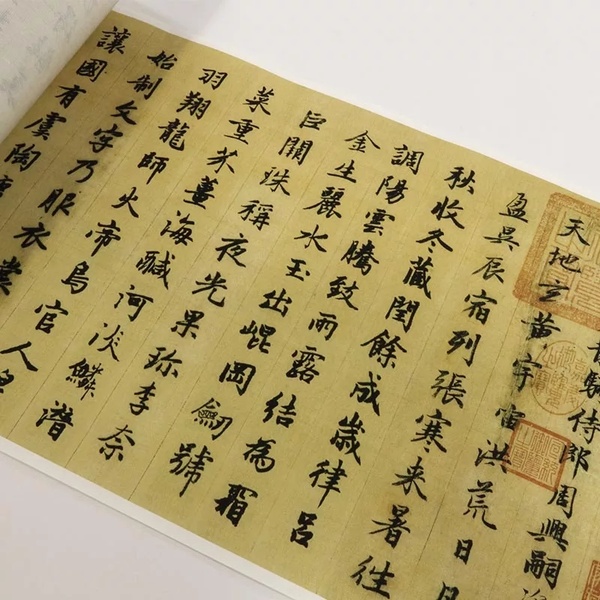 騎侍郎周興嗣
天地玄黃宇宙洪荒日月
盈昃辰宿列張寒来暑往
秋收冬藏閏餘成歲律呂
調陽雲騰致雨露結為霜
金生麗水玉出崐岡劒號
巨闕珠稱夜光果珍李柰
菜重芥薑海醎河淡鱗潛
羽翔龍師火帝鳥官人皇
始制文字乃服衣裳
讓國有虞陶唐